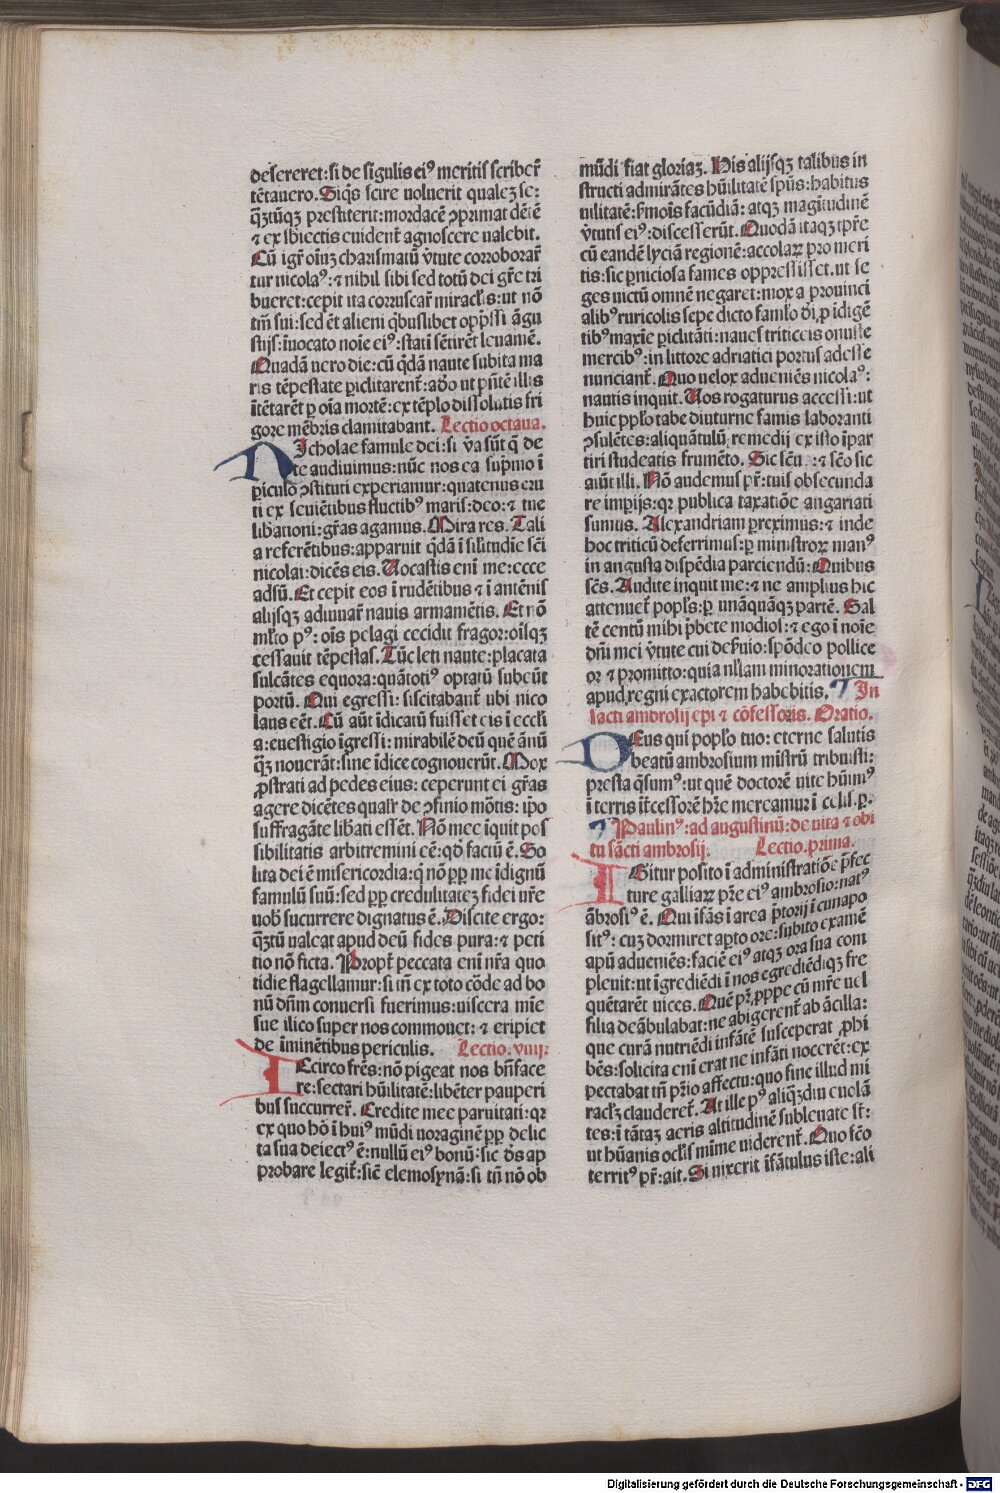 desereret: si de sīgulis ei⁹ meritis scriber̄
tētauero. Siq̄s scire uoluerit qualeʒ se:
q̄ʒtūqʒ prestiterit: mordacē ꝯprimat dētē
⁊ ex sb̄iectis euident̄ agnoscere ualebit.
Cū igr̄ oīuʒ charismatū v̄tute corroborar̄
tur nicola⁹: ⁊ nihil sibi sed totū dei gr̄e tri
bueret: cepit ita corruscar̄ miracl̄is: ut nō
tm̄ sui: sed ēt alieni q̄buslibet opp̄ssi āgu
stijs: īuocato noīe ei⁹: statī sētirēt leuamē.
Quadā uero die: cū q̄dā naute subita ma
ris tēpestate ꝑiclitarent̄: adō ut pn̄tē illis
ītētarēt ꝑ oīa mortē: ex tēplo dissolutis fri
gore mēbris clamitabant. Lectio octaua.
Nicholae famule dei: si v̄a sūt q̄ de
te audiuimus: nūc nos ea sup̄mo ī
ꝑiculo ꝯstituti experiamur: quatenus eru
ti ex seuiētibus fluctib⁹ maris: deo: ⁊ tue
lib̄ationi: gr̄as agamus. Mira res. Tali
a referētibus: apparuit q̄dā ī sil̄itudīe sc̄i
nicolai: dicēs eis. Uocastis enī me: ecce
adsū. Et cepit eos ī rudētibus ⁊ ī antēnis
alijsqʒ adiuuar̄ nauis armamētis. Et nō
ml̄to p⁹: oīs pelagi cecidit fragor: oīsqʒ
cessauit tēpestas. Tūc leti naute: placata
sulcātes equora: quātoti⁹ optatū subeūt
portū. Qui egressi: sciscitabant̄ ubi nico
laus eēt. Cū aūt īdicatū fuisset eis ī eccl̄i
a: euestigio īgressi: mirabilē deū quē ānū
q̄ʒ nouerāt: sine īdice cognouerūt. Mox
ꝓstrati ad pedes eius: ceperunt ei gr̄as
agere dicētes qualr̄ de ꝯfinio mōtis: ip̄o
suffragāte lib̄ati essēt. Nō mee īquit pos
sibilitatis arbitremini eē: qd̄ faciū ē. So
lita dei ē misericordia: q̄ nō pp̄ me īdignū
famulū suū: sed pp̄ credulitateʒ fidei ur̄e
uob̄ sucurrere dignatus ē. Discite ergo:
q̄ʒtū ualeat apud deū fides pura: ⁊ peti
tio nō ficta. Propt̄ peccata enī nr̄a quo
tidie flagellamur: si tn̄ ex toto cōde ad bo
nū dn̄m conuersi fuerimus: uiscera mīe
sue ilico super nos commouet: ⁊ eripiet
de īminētibus periculis. Lectio. viiij.
IEcirco fr̄es: nō pigeat nos bn̄face
re: sectari hūilitatē: libēter pauperi
bus succurrer̄. Credite mee paruitati: qꝛ
ex quo hō ī hui⁹ mūdi uoraginē pp̄ delic
ta sua deiect⁹ ē: nullū ei⁹ bonū: sic d̄s ap
probare legit̄: sic̄ elemosynā: si tn̄ nō ob
mūdi fiat gloriaʒ. His alijsqʒ talibus in
structi admirātes hūilitatē sp̄us: habitus
uilitatē: s̄mois facūdiā: atqʒ magītudinē
v̄tutis ei⁹: discesserūt. Quodā itaqʒ tp̄re
cū eandē lyciā regionē: accolaꝝ pro meri
tis: sic ꝑniciosa fames oppressisset. ut se
ges uictū omnē negaret: mox a prouinci
alib⁹ ruricolis sepe dicto faml̄o d̄i, ꝑ īdigē
tib⁹ maxīe ꝑiclitāti: naues triticeis onuste
mercib⁹: in littore adriatici portus adesse
nunciant̄. Quo uelox adueniēs nicola⁹:
nautis inquit. Uos rogaturus accessi: ut
huic pp̄lo tabe diuturne famis laboranti
ꝯsulētes: aliquātulū remedij ex isto īpar
tiri studeatis frumēto. Sic sēu : ⁊ sēo sic
aiūt illi. Nō audemus pr̄: tuis obsecunda
re imp̄ijs: qꝛ publica taxatiōe angariati
sumus. Alexandriam ꝑreximus: ⁊ inde
hoc triticū deferrimus: ꝑ ministroꝝ man⁹
in angusta dispēdia parciendū: Quibus
sēs. Audite inquit me: ⁊ ne amplius hic
attenuet̄ popl̄s: ꝑ unāquāqʒ partē. Sal
tē centū mihi p̄bete modios: ⁊ ego ī noīe
dn̄i mei v̄tute cui def̄nio: spōdeo pollice
or ⁊ promitto: quia ull̄am minorationem
apud regni exactorem habebitis. ¶ In
sācti ambrosij ep̄i ⁊ cōfessoris. Oratio.
DEus qui popl̄o tuo: eterne salutis
beatū ambrosium mīstrū tribuisti:
presta q̄sum⁹: ut quē doctorē uite hūim⁹
ī terris īt̄cessorē hr̄e mereamur ī celis. ꝑ.
¶ Paulin⁹: ad augustinū: de uita ⁊ obi
tu sācti ambrosij. Lectio. prima.
IGitur posito ī administratiōe p̄fec
ture galliaꝝ pr̄e ei⁹ ambrosio: nat⁹
āb̄rosi⁹ ē. Qui īfās ī area p̄torij ī cunapo
sit⁹: cuʒ dormiret aꝑto ore: subito examē
apū adueniēs: faciē ei⁹ atqʒ ora sua com
pleuit: ut īgrediēdi ī nos egrediēdiqʒ fre
quētarēt uices. Quē pr̄, ꝓppe cū mr̄e uel
filia deābulabat: ne abigerent̄ ab ācilla:
que curā nutriēdi infātē susceperat ꝓhi
bēs: solicita enī erat ne infāti nocerēt: ex
pectabat tn̄ pr̄io affectu: quo fine illud mi
racl̄ʒ clauderet̄. At ille p⁹ aliq̄ʒdiu euolā
tes: ī tātaʒ aeris altitudinē subleuate st̄:
ut hūanis ocl̄is mīme uiderent̄. Quo fc̄o
territ⁹ pr̄: ait. Si uixerit īfātulus iste: ali
Digitalisierung gefördert durch die Deutsche Forschungsgemeinschaft - DFG